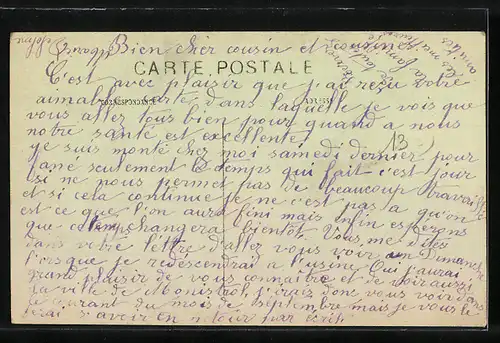 Bien cher cousin et cousines
CARTE POSTALE
C'est avec plaisir que j'ai reçu votre
CORRESPONDANCE
ADRESSE
aimable carte dans laquelle je vois que
vous allez tous bien pour quand a nous
notre santé est excellente
13
je suis monté chez moi samedi dernier pour
seulement le temps qui fait c'est jour
si ne nous permet pas de beaucoup travailler
et si cela continue je ne c'est pas a qu'on
est ce que l'on aura fini mais enfin esperons
que ce temp changera bientôt Vous me dites
dans votre léttre d'allez vous voir un Dimanche
lorsque je redescendrai a l'usine Oui j'aurai
grand plaisir de vous connaître et de voir aussi
la ville de Monistrol j'irais donc vous voir dans
le courant du mois de septembre mais je vous le
ferai s'avoir en retour par écrit